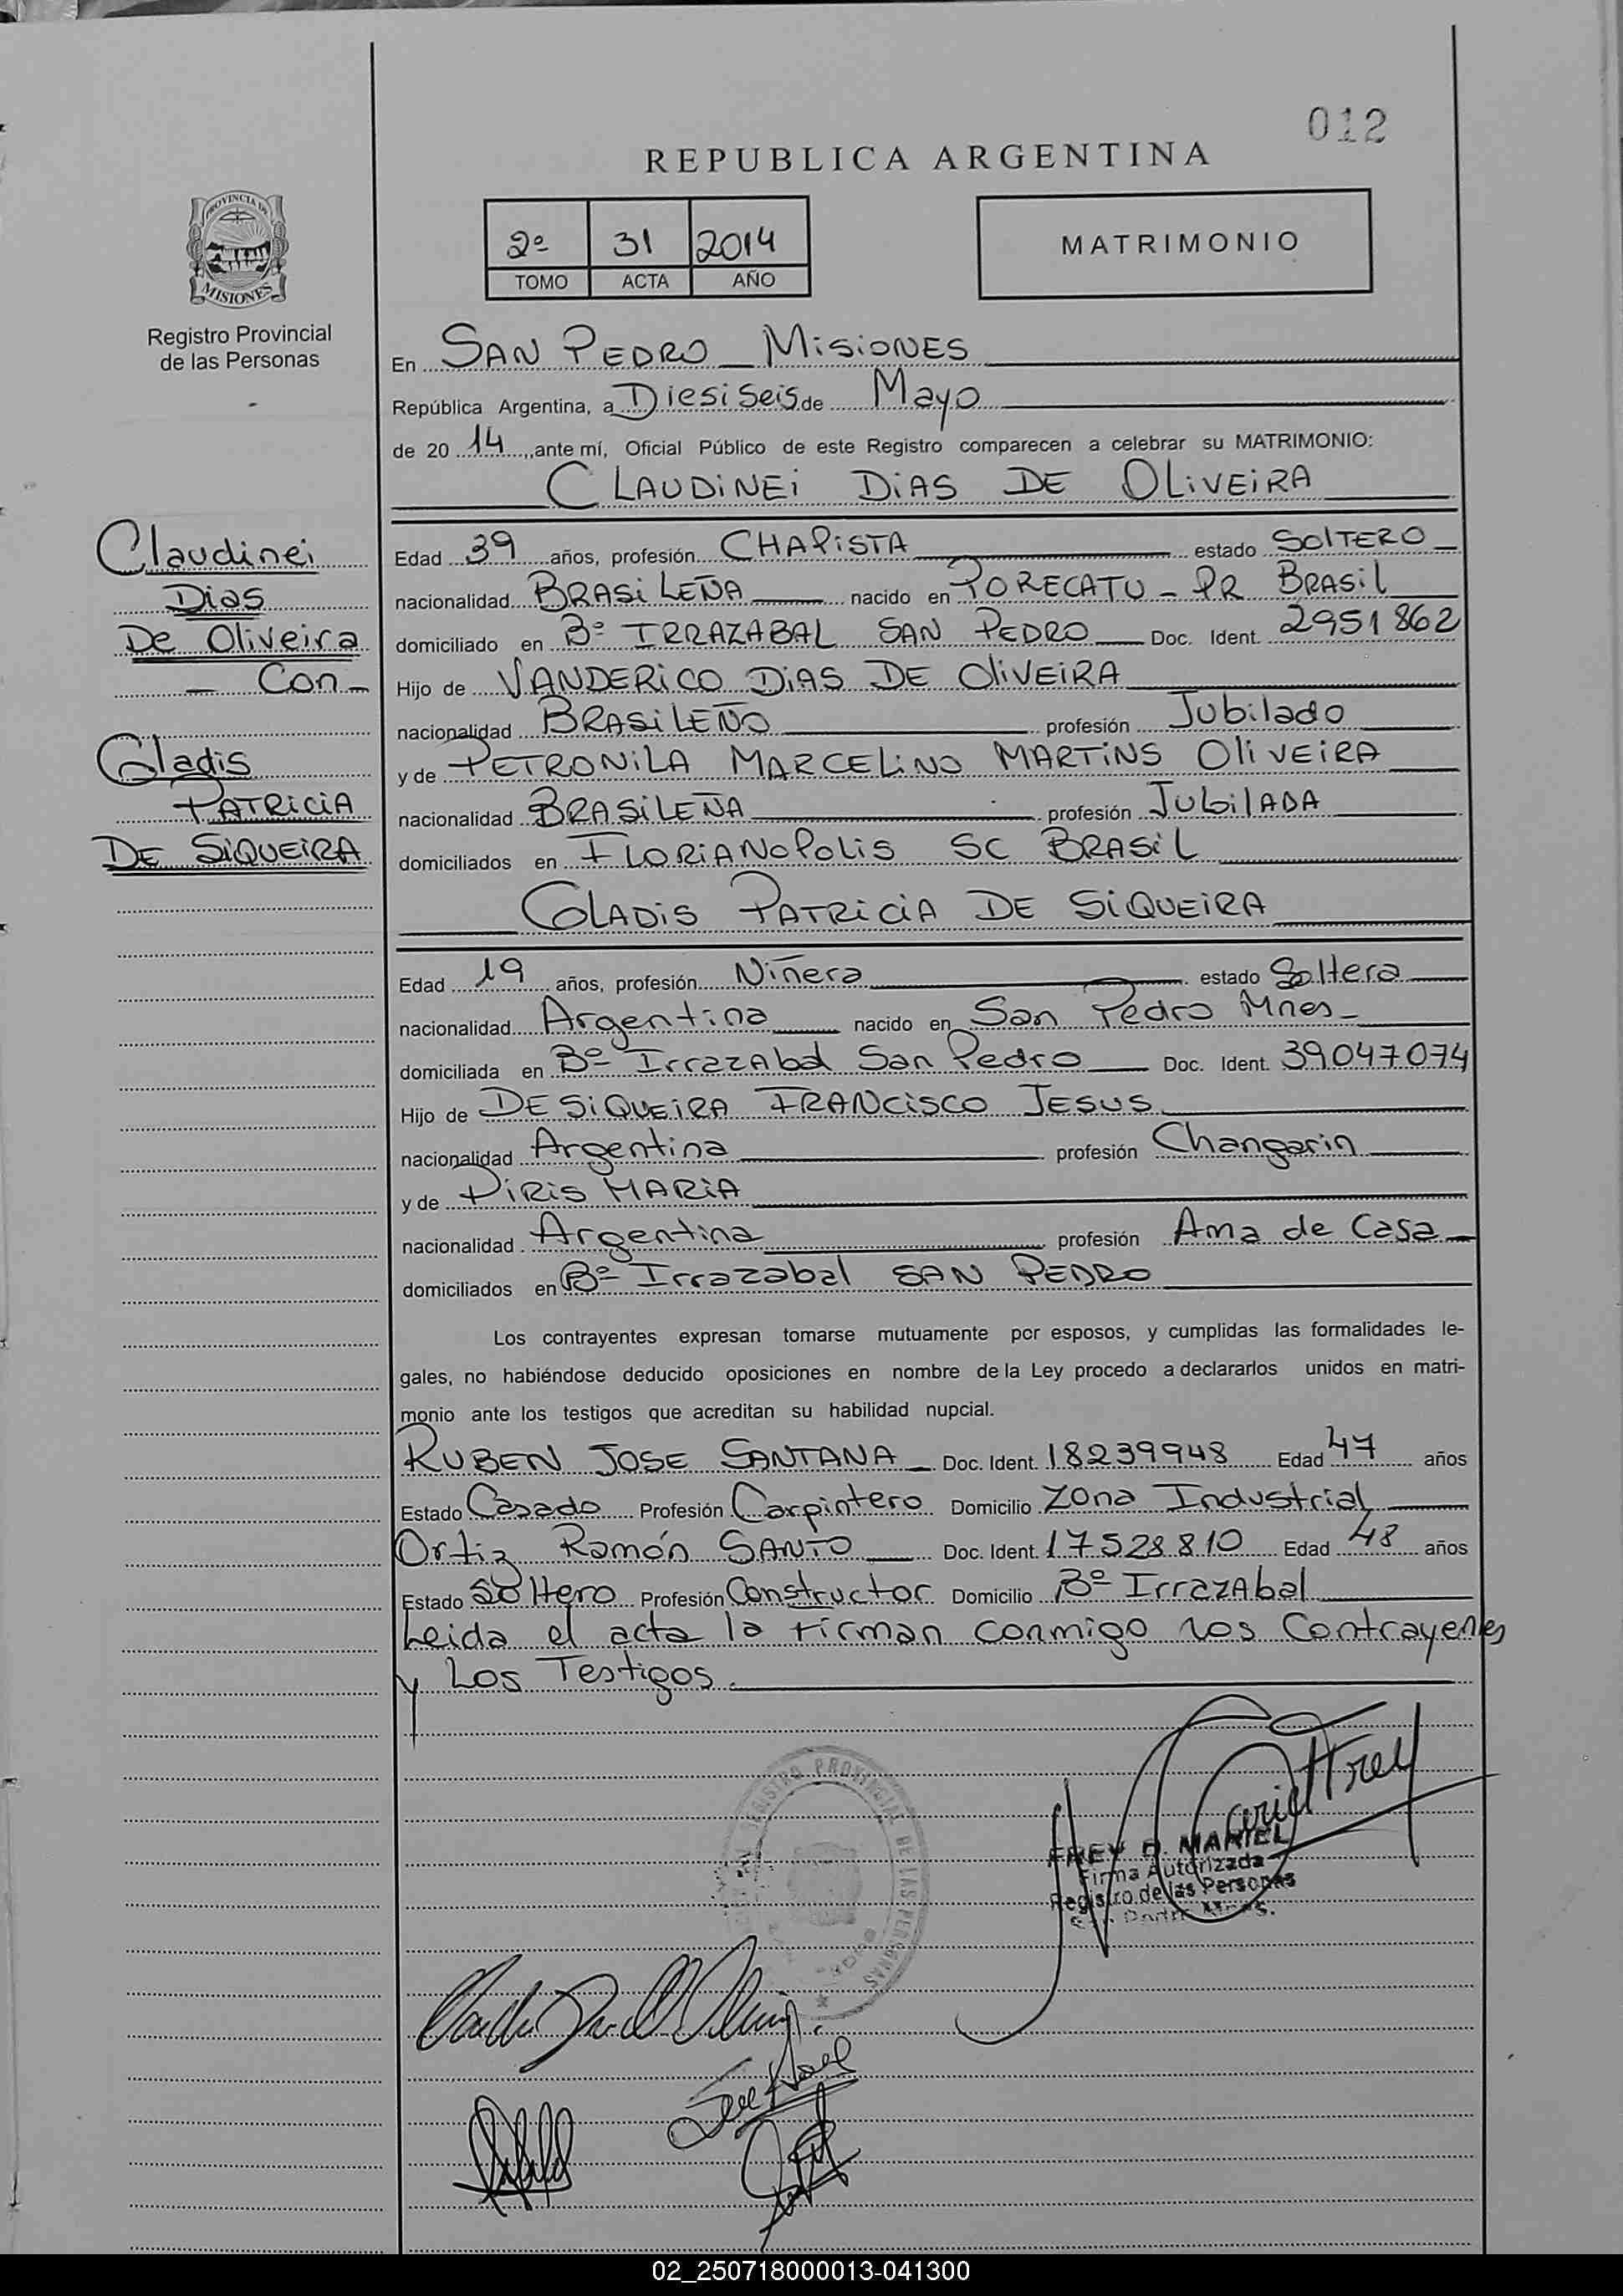 012
REPUBLICA ARGENTINA
PROVINCIA DE
MISIONES
Registro Provincial
de las Personas
2º 31 2014
TOMO ACTA AÑO
MATRIMONIO
En SAN PEDRO _ MISIONES
República Argentina, a Diesiseis de Mayo
de 20 14, ante mí, Oficial Público de este Registro comparecen a celebrar su MATRIMONIO:
CLAUDINEI DIAS DE OLIVEIRA
Claudinei
Dias
De Oliveira
_ Con _
Gladis
PATRICIA
DE SIQUEIRA
Edad 39 años, profesión CHAPISTA estado SOLTERO
nacionalidad BRASILEÑA nacido en PORECATU - PR BRASIL
domiciliado en Bº IRRAZABAL SAN PEDRO Doc. Ident. 2951862
Hijo de VANDERICO DIAS DE OLIVEIRA
nacionalidad BRASILEÑO profesión Jubilado
y de PETRONILA MARCELINO MARTINS OLIVEIRA
nacionalidad BRASILEÑA profesión JUBILADA
domiciliados en FLORIANOPOLIS SC BRASIL
GLADIS PATRICIA DE SIQUEIRA
Edad 19 años, profesión Niñera estado Soltera
nacionalidad Argentina nacido en San Pedro Mnes-
domiciliada en Bº IrrazAbal San Pedro Doc. Ident. 39047074
Hijo de DE SIQUEIRA FRANCISCO JESUS
nacionalidad Argentina profesión Changarin
y de PIRIS MARIA
nacionalidad Argentina profesión Ama de Casa
domiciliados en Bº Irrazabal SAN PEDRO
Los contrayentes expresan tomarse mutuamente por esposos, y cumplidas las formalidades le-
gales, no habiéndose deducido oposiciones en nombre de la Ley procedo a declararlos unidos en matri-
monio ante los testigos que acreditan su habilidad nupcial.
RUBEN JOSE SANTANA _ Doc. Ident. 18239948 Edad 47 años
Estado Casado Profesión Carpintero Domicilio Zona Industrial
Ortiz Ramón SANTO Doc. Ident. 17528810 Edad 48 años
Estado Soltero Profesión Constructor Domicilio Bº IrrazAbal
Leida el acta la firman conmigo los Contrayentes
y Los Testigos.
REGISTRO PROVINCIAL DE LAS PERSONAS
FREY D. MARIEL
Firma Autorizada
Registro de las Personas
San Pedro Mnes.
02_250718000013-041300